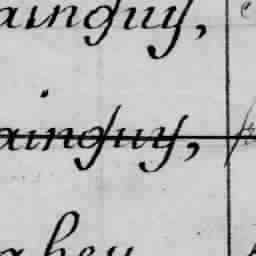 ainguy,
ainguy,
ahey